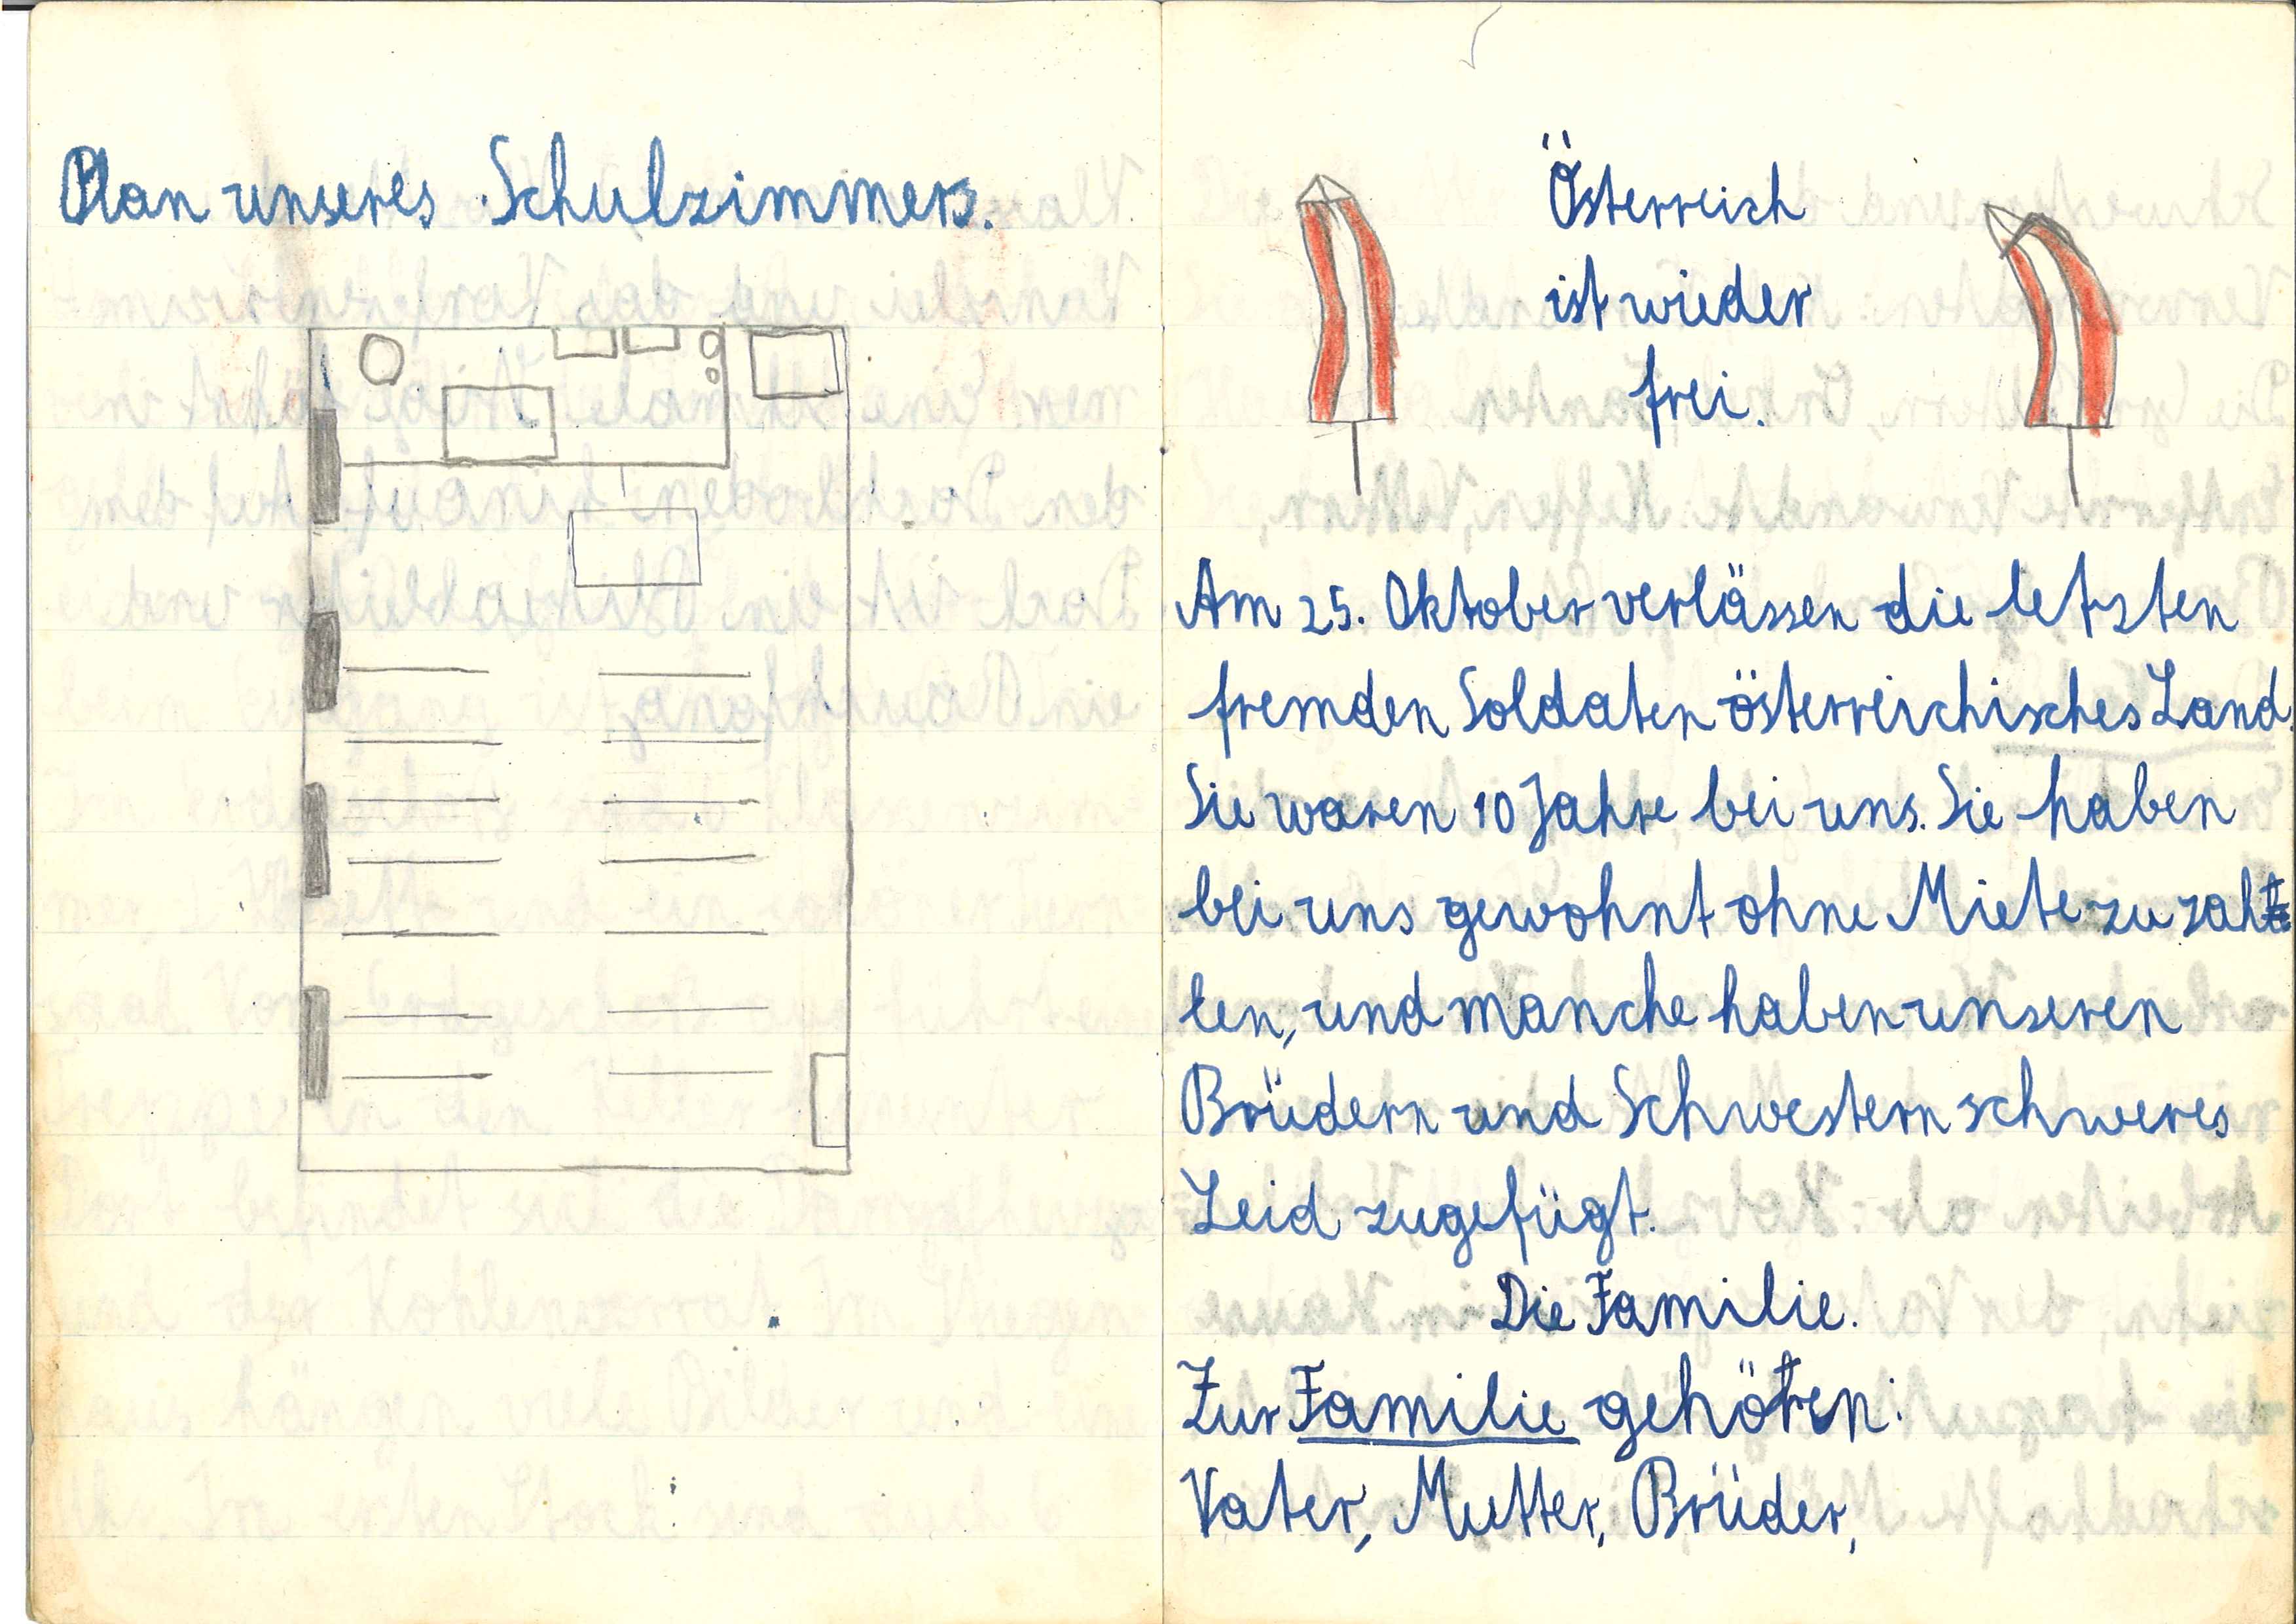 Plan unseres Schulzimmers.
Österreich
ist wieder
frei.
Am 25. Oktober verlässen die letzten
fremden Soldaten österreichisches Land.
Sie waren 10 Jahre bei uns. Sie haben
bei uns gewohnt ohne Miete zu zah
len, und manche haben unseren
Brüdern und Schwestern schweres
Leid zugefügt.
Die Familie.
Zur Familie gehören:
Vater, Mutter, Brüder,